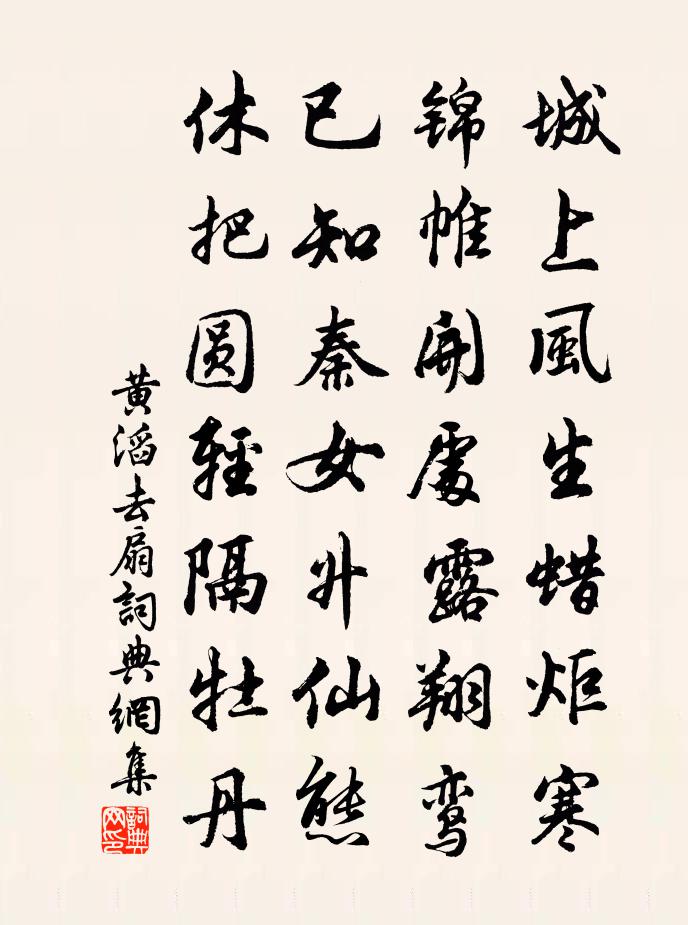 城上風生蜡炬寒
锦帷開處露翔鸾
已知秦女升仙態
休把圆輕隔牡丹
黄滔去扇詞典網集
詞典网印